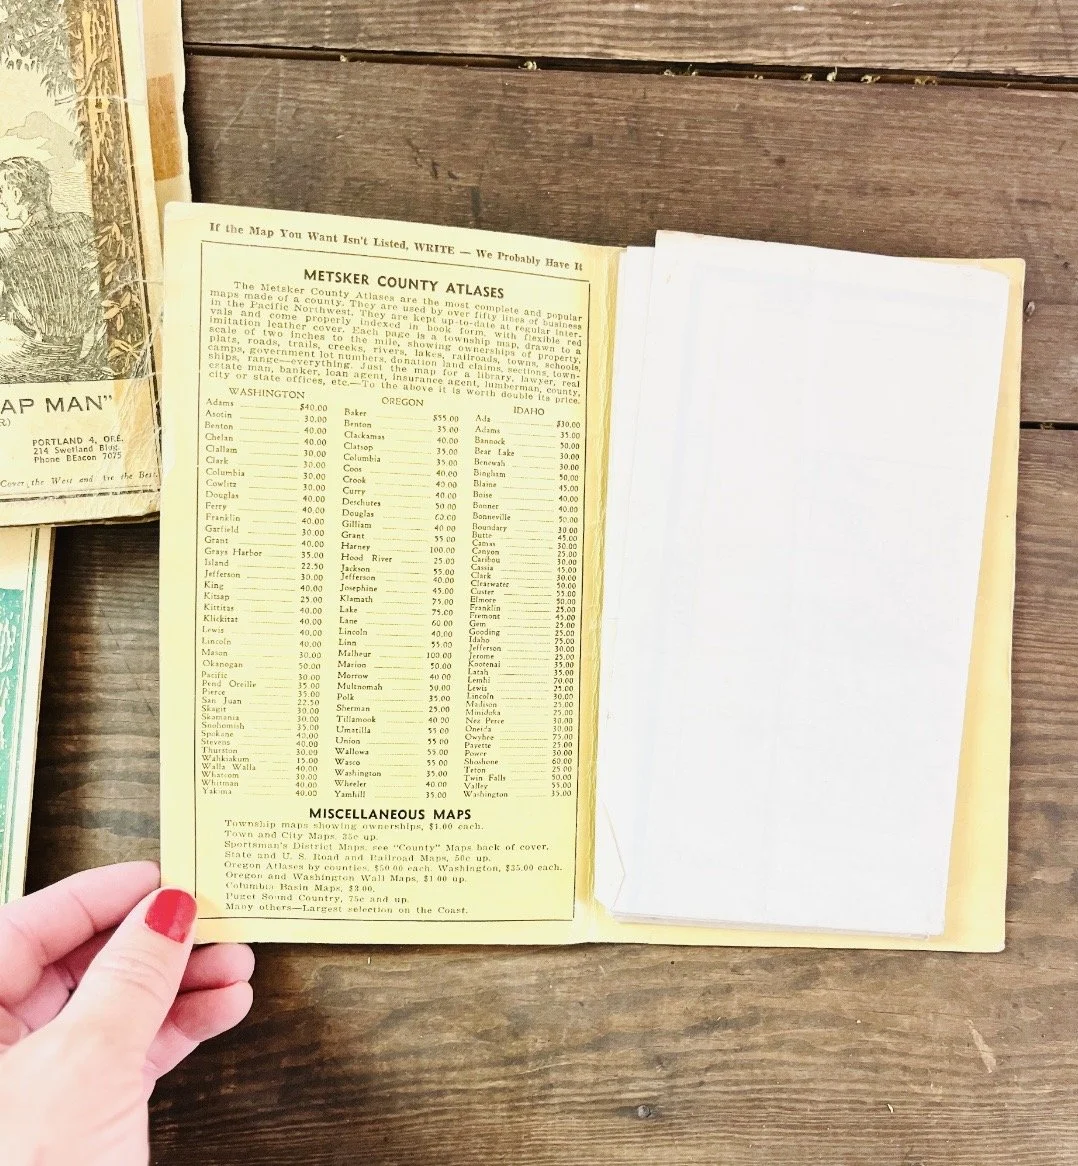 AP MAN"
R)
PORTLAND 4, ORE.
214 Swetland Bldg.
Phone BEacon 7075
Cover the West and Are the Best
If the Map You Want Isn't Listed, WRITE — We Probably Have It
METSKER COUNTY ATLASES
The Metsker County Atlases are the most complete and popular
maps made of a county. They are used by over fifty lines of business
in the Pacific Northwest. They are kept up-to-date at regular inter-
vals and come properly indexed in book form, with flexible red
imitation leather cover. Each page is a township map, drawn to a
scale of two inches to the mile, showing ownerships of property,
plats, roads, trails, creeks, rivers, lakes, railroads, towns, schools,
camps, government lot numbers, donation land claims, sections, town-
ships, range—everything. Just the map for a library, lawyer, real
estate man, banker, loan agent, insurance agent, lumberman, county,
city or state offices, etc.—To the above it is worth double its price.
WASHINGTON
Adams $40.00
Asotin 30.00
Benton 40.00
Chelan 40.00
Clallam 30.00
Clark 30.00
Columbia 30.00
Cowlitz 30.00
Douglas 40.00
Ferry 40.00
Franklin 40.00
Garfield 30.00
Grant 40.00
Grays Harbor 35.00
Island 22.50
Jefferson 30.00
King 40.00
Kitsap 25.00
Kittitas 40.00
Klickitat 40.00
Lewis 40.00
Lincoln 40.00
Mason 30.00
Okanogan 50.00
Pacific 30.00
Pend Oreille 35.00
Pierce 35.00
San Juan 22.50
Skagit 30.00
Skamania 30.00
Snohomish 35.00
Spokane 40.00
Stevens 40.00
Thurston 30.00
Wahkiakum 15.00
Walla Walla 40.00
Whatcom 30.00
Whitman 40.00
Yakima 40.00
OREGON
Baker $55.00
Benton 35.00
Clackamas 40.00
Clatsop 35.00
Columbia 35.00
Coos 40.00
Crook 40.00
Curry 40.00
Deschutes 50.00
Douglas 60.00
Gilliam 40.00
Grant 55.00
Harney 100.00
Hood River 25.00
Jackson 55.00
Jefferson 40.00
Josephine 45.00
Klamath 75.00
Lake 75.00
Lane 60.00
Lincoln 40.00
Linn 55.00
Malheur 100.00
Marion 50.00
Morrow 40.00
Multnomah 50.00
Polk 35.00
Sherman 25.00
Tillamook 40.00
Umatilla 55.00
Union 55.00
Wallowa 55.00
Wasco 55.00
Washington 35.00
Wheeler 40.00
Yamhill 35.00
IDAHO
Ada $30.00
Adams 35.00
Bannock 50.00
Bear Lake 30.00
Benewah 30.00
Bingham 50.00
Blaine 45.00
Boise 40.00
Bonner 40.00
Bonneville 50.00
Boundary 30.00
Butte 45.00
Camas 30.00
Canyon 25.00
Caribou 30.00
Cassia 45.00
Clark 30.00
Clearwater 50.00
Custer 55.00
Elmore 50.00
Franklin 25.00
Fremont 45.00
Gem 25.00
Gooding 25.00
Idaho 75.00
Jefferson 30.00
Jerome 25.00
Kootenai 35.00
Latah 35.00
Lemhi 70.00
Lewis 25.00
Lincoln 30.00
Madison 25.00
Minidoka 25.00
Nez Perce 30.00
Oneida 30.00
Owyhee 75.00
Payette 25.00
Power 30.00
Shoshone 60.00
Teton 25.00
Twin Falls 50.00
Valley 55.00
Washington 35.00
MISCELLANEOUS MAPS
Township maps showing ownerships, $1.00 each.
Town and City Maps, 35c up.
Sportsman's District Maps, see "County" Maps back of cover.
State and U. S. Road and Railroad Maps, 50c up.
Oregon Atlases by counties, $50.00 each. Washington, $35.00 each.
Oregon and Washington Wall Maps, $1.00 up.
Columbia Basin Maps, $2.00.
Puget Sound Country, 75c and up.
Many others—Largest selection on the Coast.